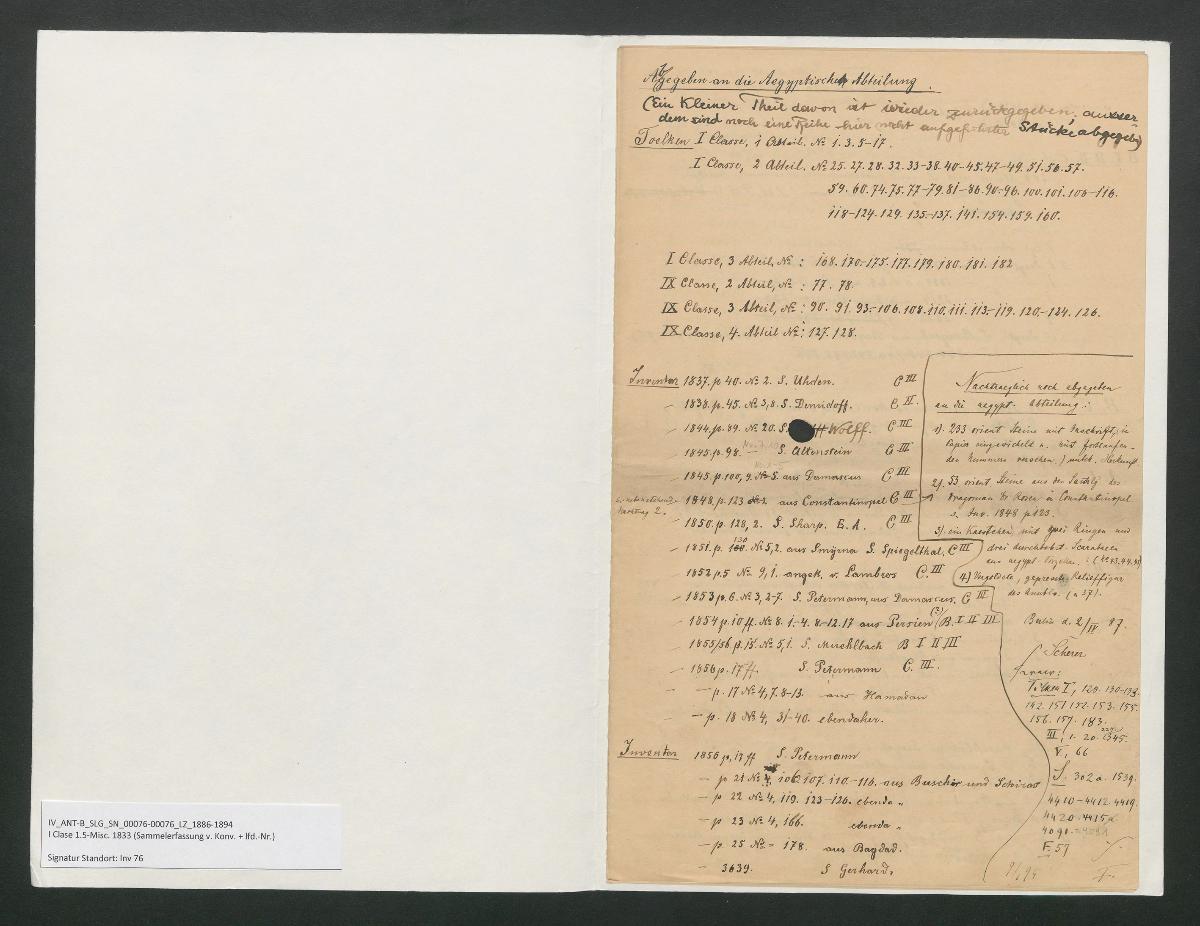 Abgegeben an die Aegyptische Abteilung.
(Ein Kleiner Theil davon ist wieder zurückgegeben, ausser
dem sind noch eine Reihe hier nicht aufgeführter Stücke abgegeb)
Toelken I Classe, 1 Abteil. No 1. 3. 5-17.
I Classe, 2 Abteil. No 25. 27. 28. 32. 33-38. 40-45. 47-49. 51. 56. 57.
59. 60. 74. 75. 77-79. 81-86. 90-96. 100. 101. 106-116.
118-124. 129. 135-137. 141. 154. 159. 160.
I Classe, 3 Abteil. No: 168. 170-175. 177. 179. 180. 181. 182
IX Classe, 2 Abteil, No: 77. 78.
IX Classe, 3 Abteil, No: 90. 91. 93-106. 108. 110. 111. 113-119. 120-124. 126.
IX Classe, 4. Abteil No: 127. 128.
Inventar 1837. p 40. No 2. S. Uhden. C III
– 1838. p. 45. No 3,8. S. Demidoff. C II.
– 1844. p. 89. No 20. S. Wolff. C III
– 1845. p. 98. – S. Altenstein C III
– 1845. p. 100, 9. No 5. aus Damascus C III
– 1848. p. 123 No 2 aus Constantinopel C III
– 1850. p. 128, 2. S. Sharp. E. A. C III
– 1851. p. 130 No 5,2. aus Smyrna S. Spiegelthal. C III
– 1852 p. 5 No 9,1. angek. v. Lambros C. III
– 1853 p. 6. No 3, 2-7. S. Petermann, aus Damascus. C III
– 1854 p. 10 ff. No 8. 1-4. 8-12. 17 aus Persien (?) B. I II III
– 1855/56 p. 15. No 5,1. S. Muehlbach B I II III
– 1856 p. 17 ff. S. Petermann C. III.
– – p. 17 No 4, 7. 8-13. aus Hamadan
– p. 18 No 4, 31-40. ebendaher.
Inventar 1856 p. 17 ff S. Petermann
– p 21 No 4, 106. 107. 110-116. aus Buschir und Schiras
– p 22 No 4, 119. 123-126. ebenda „
– p 23 No 4, 166. ebenda „
– p. 25 No – 178. aus Bagdad.
– 3639. S Gerhard.
Nachtraeglich noch abgegeben
an die aegypt. Abteilung:
1) 233 orient Steine mit Inschrift, in
Papier eingewickelt u. mit fortlaufen-
den Nummern versehen,) unbek. Herkunft.
2) 53 orient Steine aus der Sammlg des
Dragoman Dr Rosen in Constantinopel
s. Inv. 1848 p 123.
3) ein Kaestchen mit zwei Ringen und
drei durchbohrt. Scarabaeen
4) Vergoldete, gepresste Relieffigur
des Anubis. (a 37).
Berlin d. 2/IV 87.
Scherer
ferner:
Tölken I, 128. 130-133.
142. 151 152. 153. 155.
156. 157. 183.
III, 1. 20. 1345.
V, 66
S. 302 a. 1539.
4410-4412. 4419.
4420. 4415a
4090.
F. 57
IV_ANT-B_SLG_SN_00076-00076_LZ_1886-1894
I Clase 1.5-Misc. 1833 (Sammelerfassung v. Konv. + lfd.-Nr.)
Signatur Standort: Inv 76